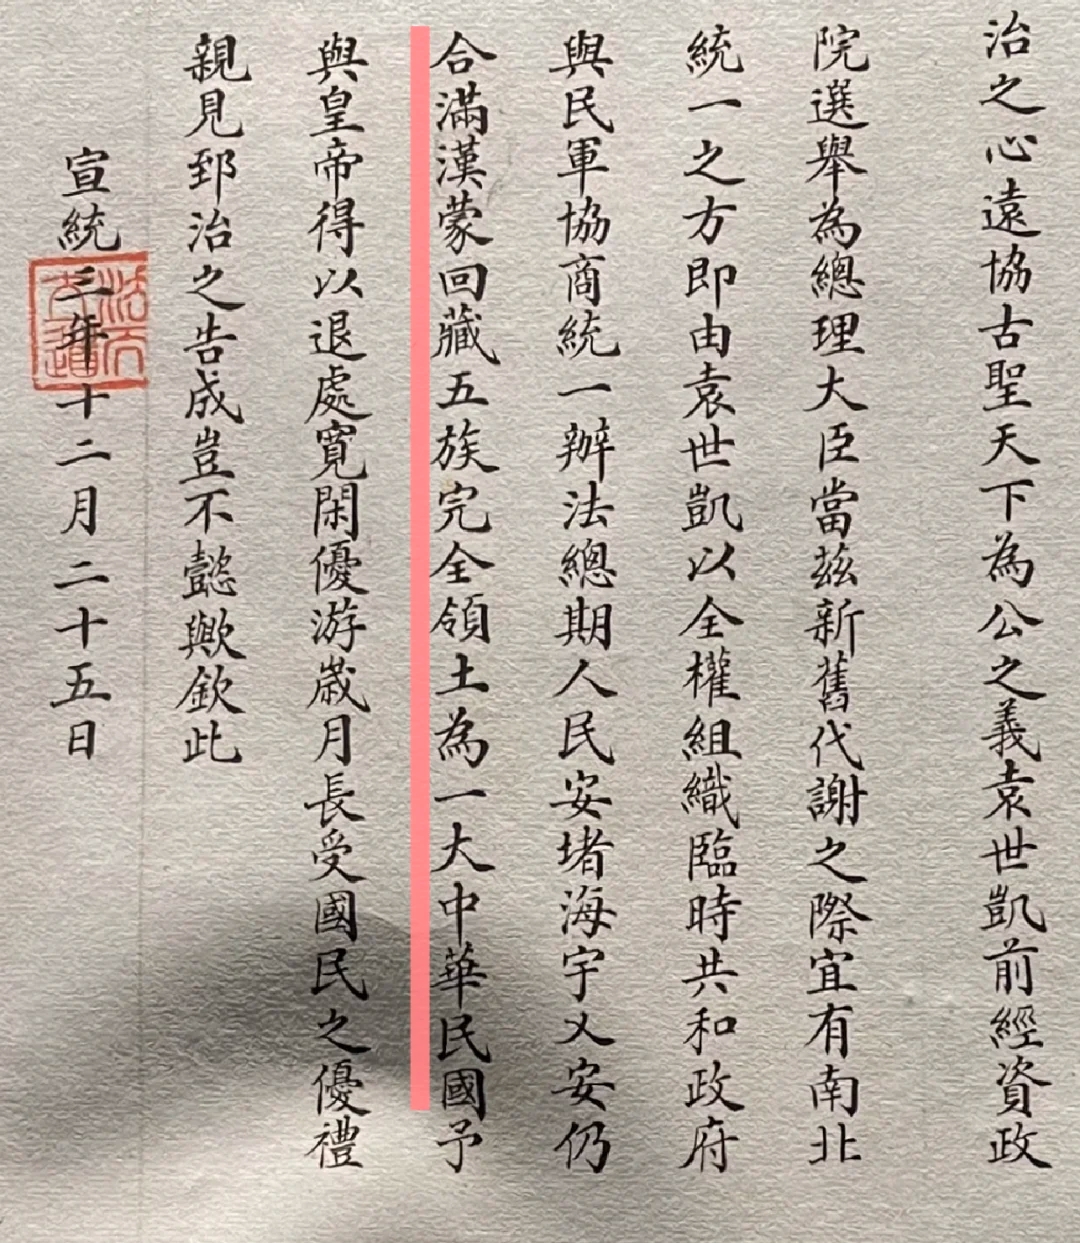 治之心遠協古聖天下為公之義袁世凱前經資政
院選舉為總理大臣當茲新舊代謝之際宜有南北
統一之方即由袁世凱以全權組織臨時共和政府
與民軍協商統一辦法總期人民安堵海宇乂安仍
合滿漢蒙回藏五族完全領土為一大中華民國予
與皇帝得以退處寬閑優游歲月長受國民之優禮
親見郅治之告成豈不懿歟欽此
宣統三年十二月二十五日
法天立道